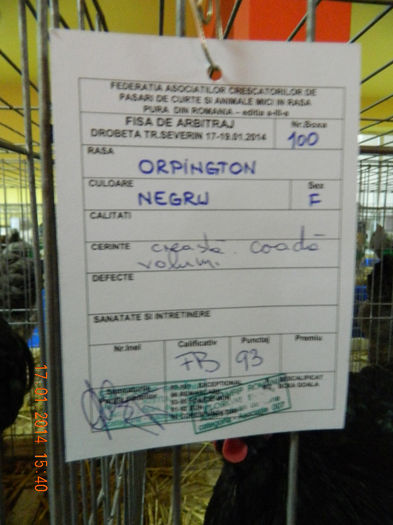 FEDERATIA ASOCIATIILOR CRESCATORILOR DE
PASARI DE CURTE SI ANIMALE MICI IN RASA
PURA DIN ROMANIA – editia a-III-a
FISA DE ARBITRAJ
DROBETA TR.SEVERIN 17-19.01.2014
Nr.Boxa
100
RASA
ORPINGTON
CULOARE
NEGRU
Sex
F
CALITATI
CERINTE creastă. coadă
volum.
DEFECTE
SANATATE SI INTRETINERE
Nr.Inel Calificativ Punctaj Premiu
FB 93
EXCEPTIONAL
17-01-2014 15:40